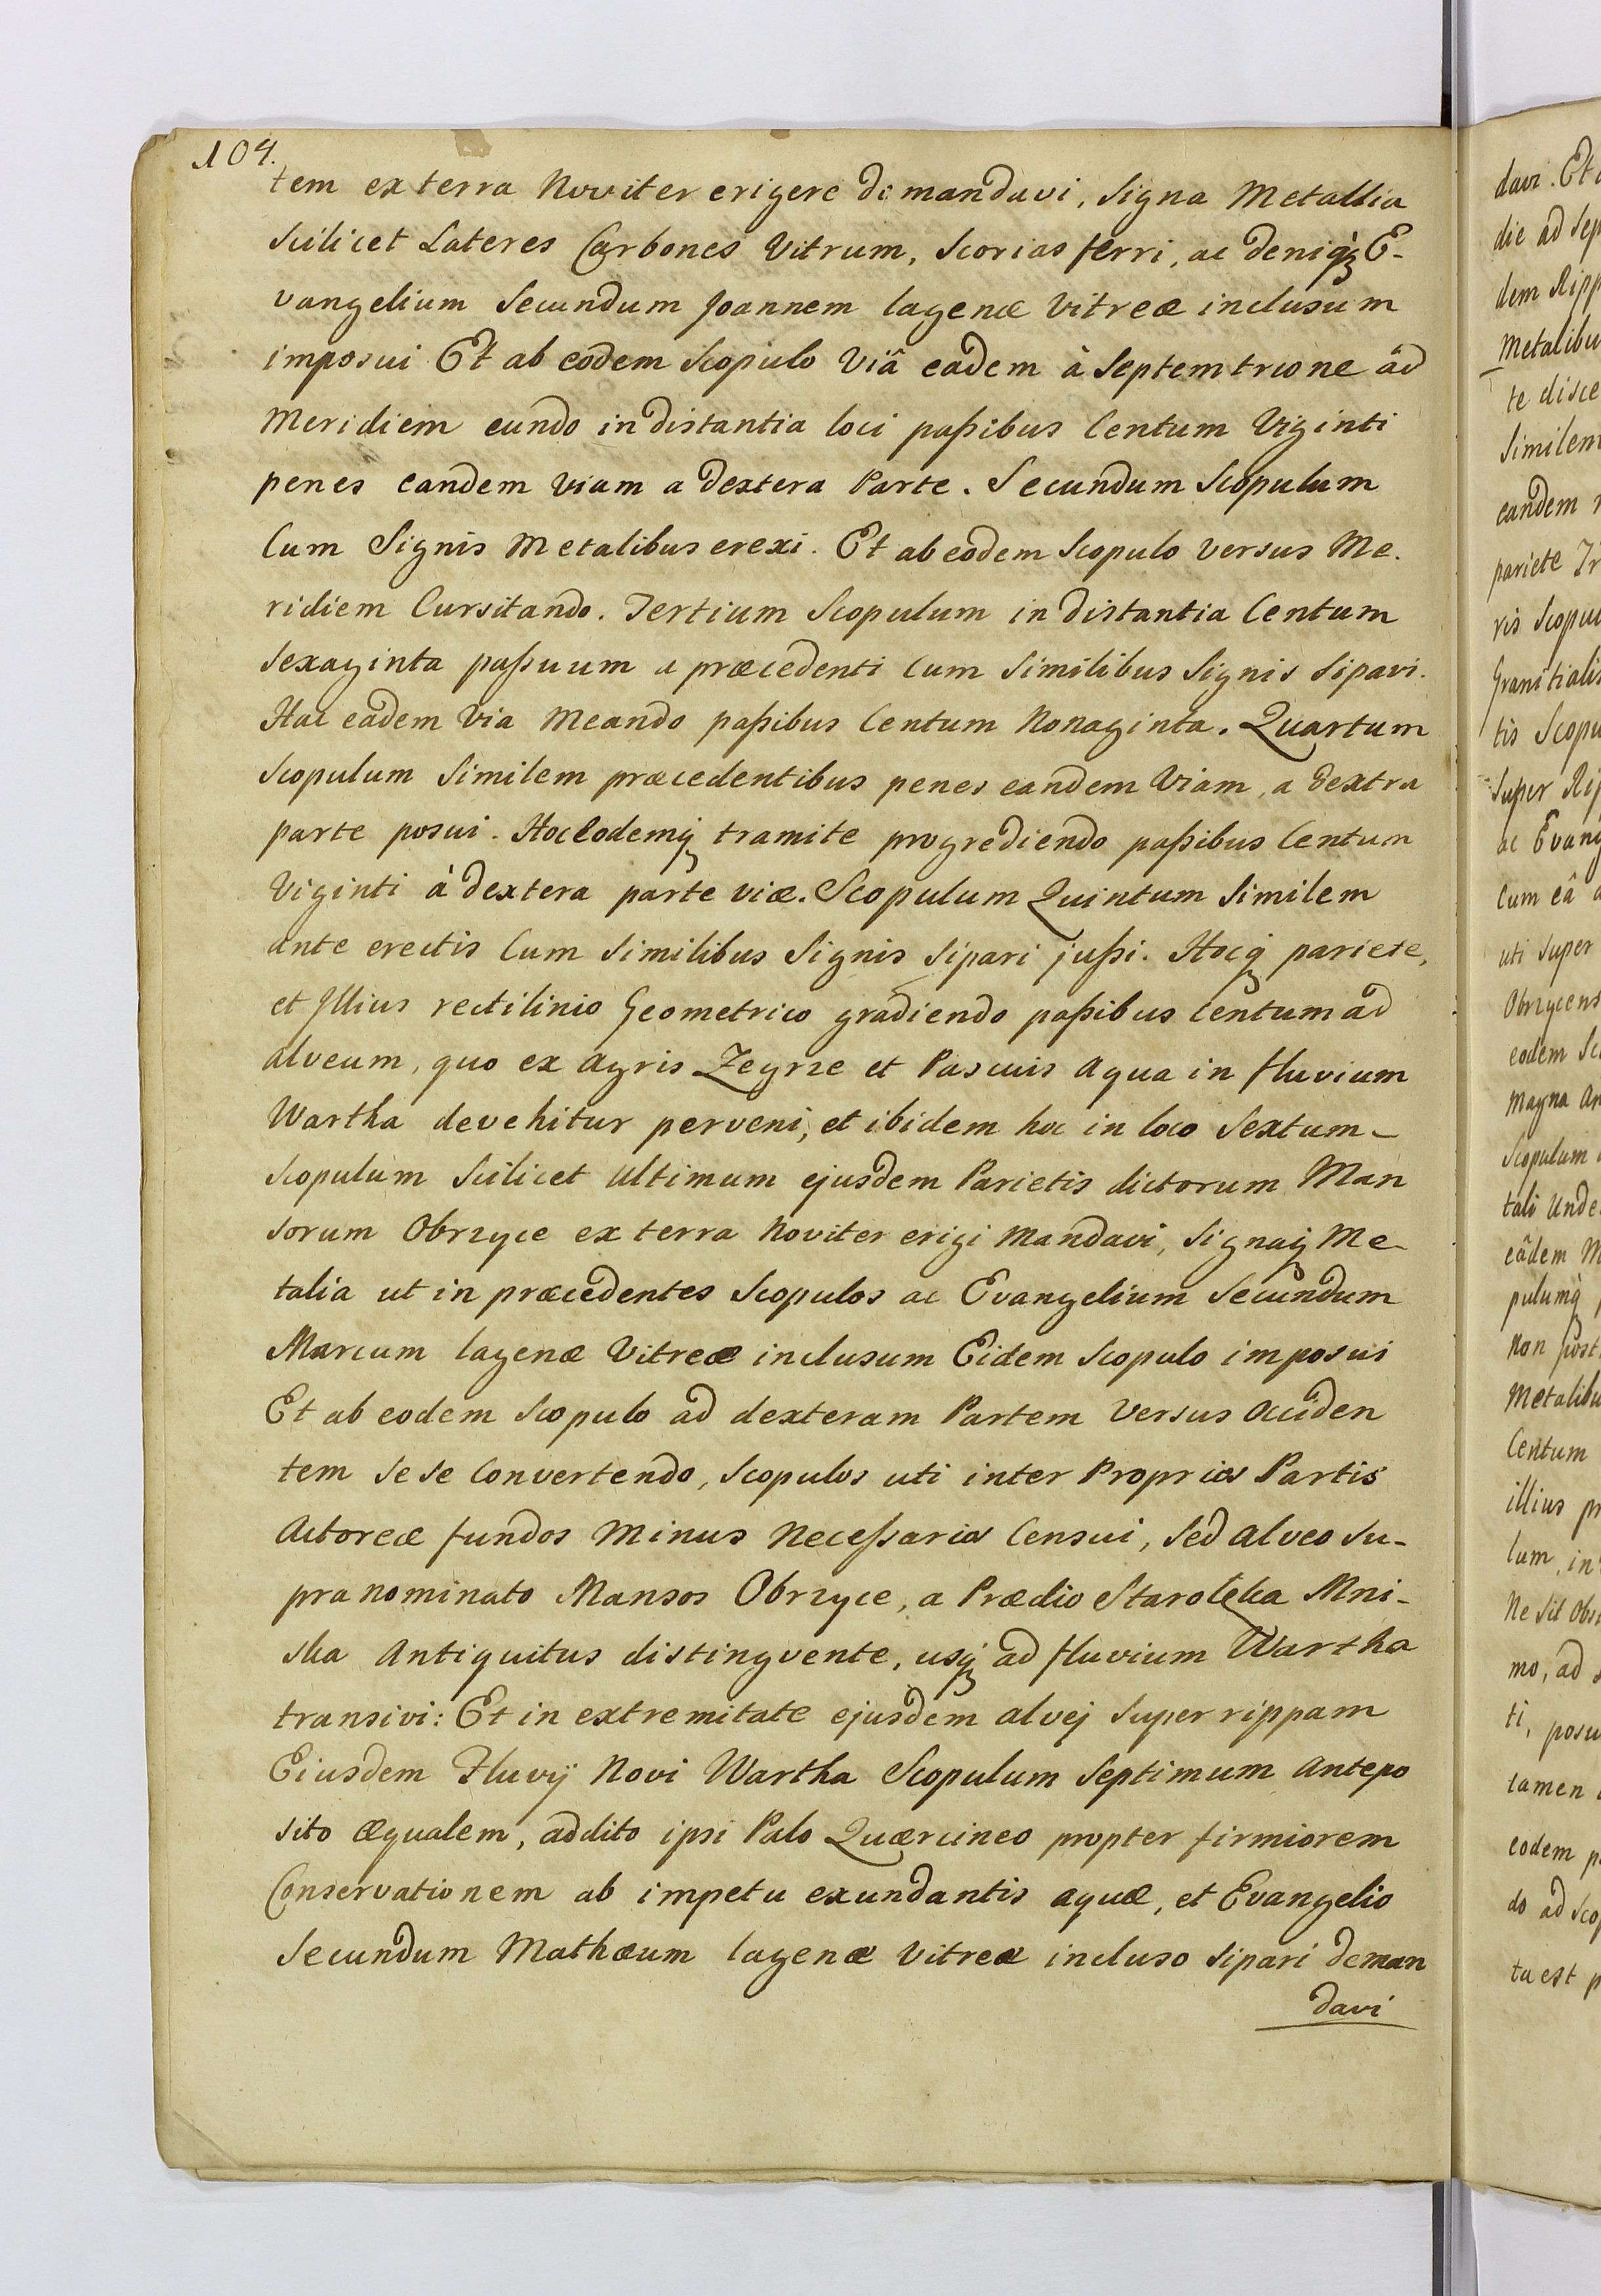 104.
tem ex terra Noviter erigere demandavi, Signa Metallia
Scilicet Lateres Carbones Vitrum, Scorias ferri, ac deniqꝫ E-
vangelium Secundum Joannem lagenæ Vitreæ inclusum
imposui Et ab eodem Scopulo Viâ eadem à Septemtrione ad
Meridiem eundo in distantia loci paßibus Centum Viginti
penes eandem viam a dextera Parte. Secundum Scopulum
Cum Signis Metalibus erexi. Et ab eodem Scopulo versus Me.
ridiem Cursitando. Tertium Scopulum in distantia Centum
Sexaginta paßuum a præcedenti Cum Similibus Signis Sipavi.
Hac eadem Via Meando paßibus Centum Nonaginta. Quartum
Scopulum Similem præcedentibus penes eandem Viam, a dextra
parte posui. Hoc Eodemqꝫ tramite progrediendo paßibus Centum
Viginti à dextera parte viæ. Scopulum Quintum Similem
ante erectis Cum Similibus Signis Sipari jußi. Hocqꝫ pariete,
et Illius rectilinio Geometrico gradiendo paßibus Centum ad
alveum, quo ex Agris Zegrze et Pascuis Aqua in fluvium
Wartha devehitur perveni, et ibidem hoc in loco Sextum-
Scopulum Scilicet Ultimum ejusdem Parietis dictorum Man
sorum Obrzyce ex terra Noviter erigi Mandavi, Signaqꝫ Me-
talia ut in præcedentes Scopulos ac Evangelium Secundum
Marcum lagenæ Vitreæ inclusum Eidem Scopulo imposui
Et ab eodem Scopulo ad dexteram Partem Versus Occiden
tem Se Se Convertendo, Scopulos uti inter Proprios Partis
Actoreæ fundos Minus Necessarios Censui, Sed alveo Su-
pra nominato Mansos Obrzyce, a Prædio Staroleka Mni-
ska Antiquitus distingvente, usqꝫ ad fluvium Wartha
transivi: Et in extremitate ejusdem alvej Super rippam
Eiusdem Fluvÿ Novi Wartha Scopulum Septimum Antepo
sito Æqualem, addito ipsi Palo Quærcineo propter firmiorem
Conservationem ab impetu exundantis aquæ, et Evangelio
Secundum Mathæum lagenæ Vitreæ incluso Sipari deman
davi
davi. Et
die ad Sep
dem Ripp
Metalibu
te disce
Similem
eandem
pariete
ris Scopu
Granitialis
tis Scopu
Super Rip
ac Evang
Cum eâ
uti Super
Obrzycens
eodem Sc
Magna An
Scopulum
tali Unde
eâdem M
pulumq
Non post
Metalibu
Centum
illius pr
lum, in
Ne Sit Obs
mo, ad
ti, posu
tamen
eodem p
do ad Scop
ta est p